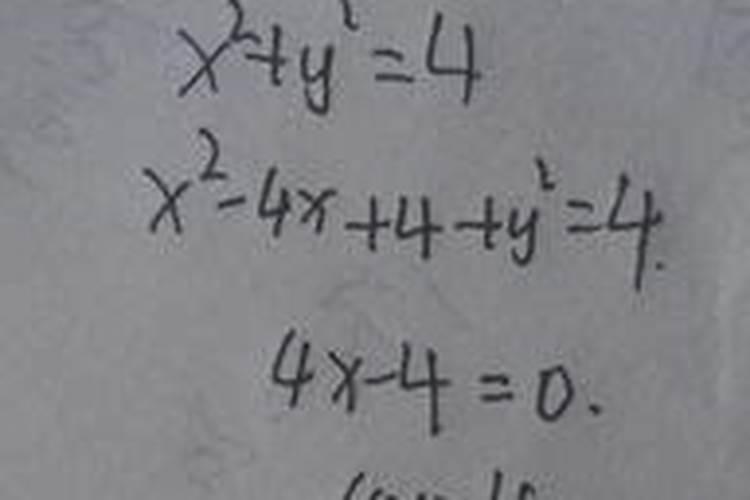 x²+y²=4
x²-4x+4+y²=4.
4x-4=0.